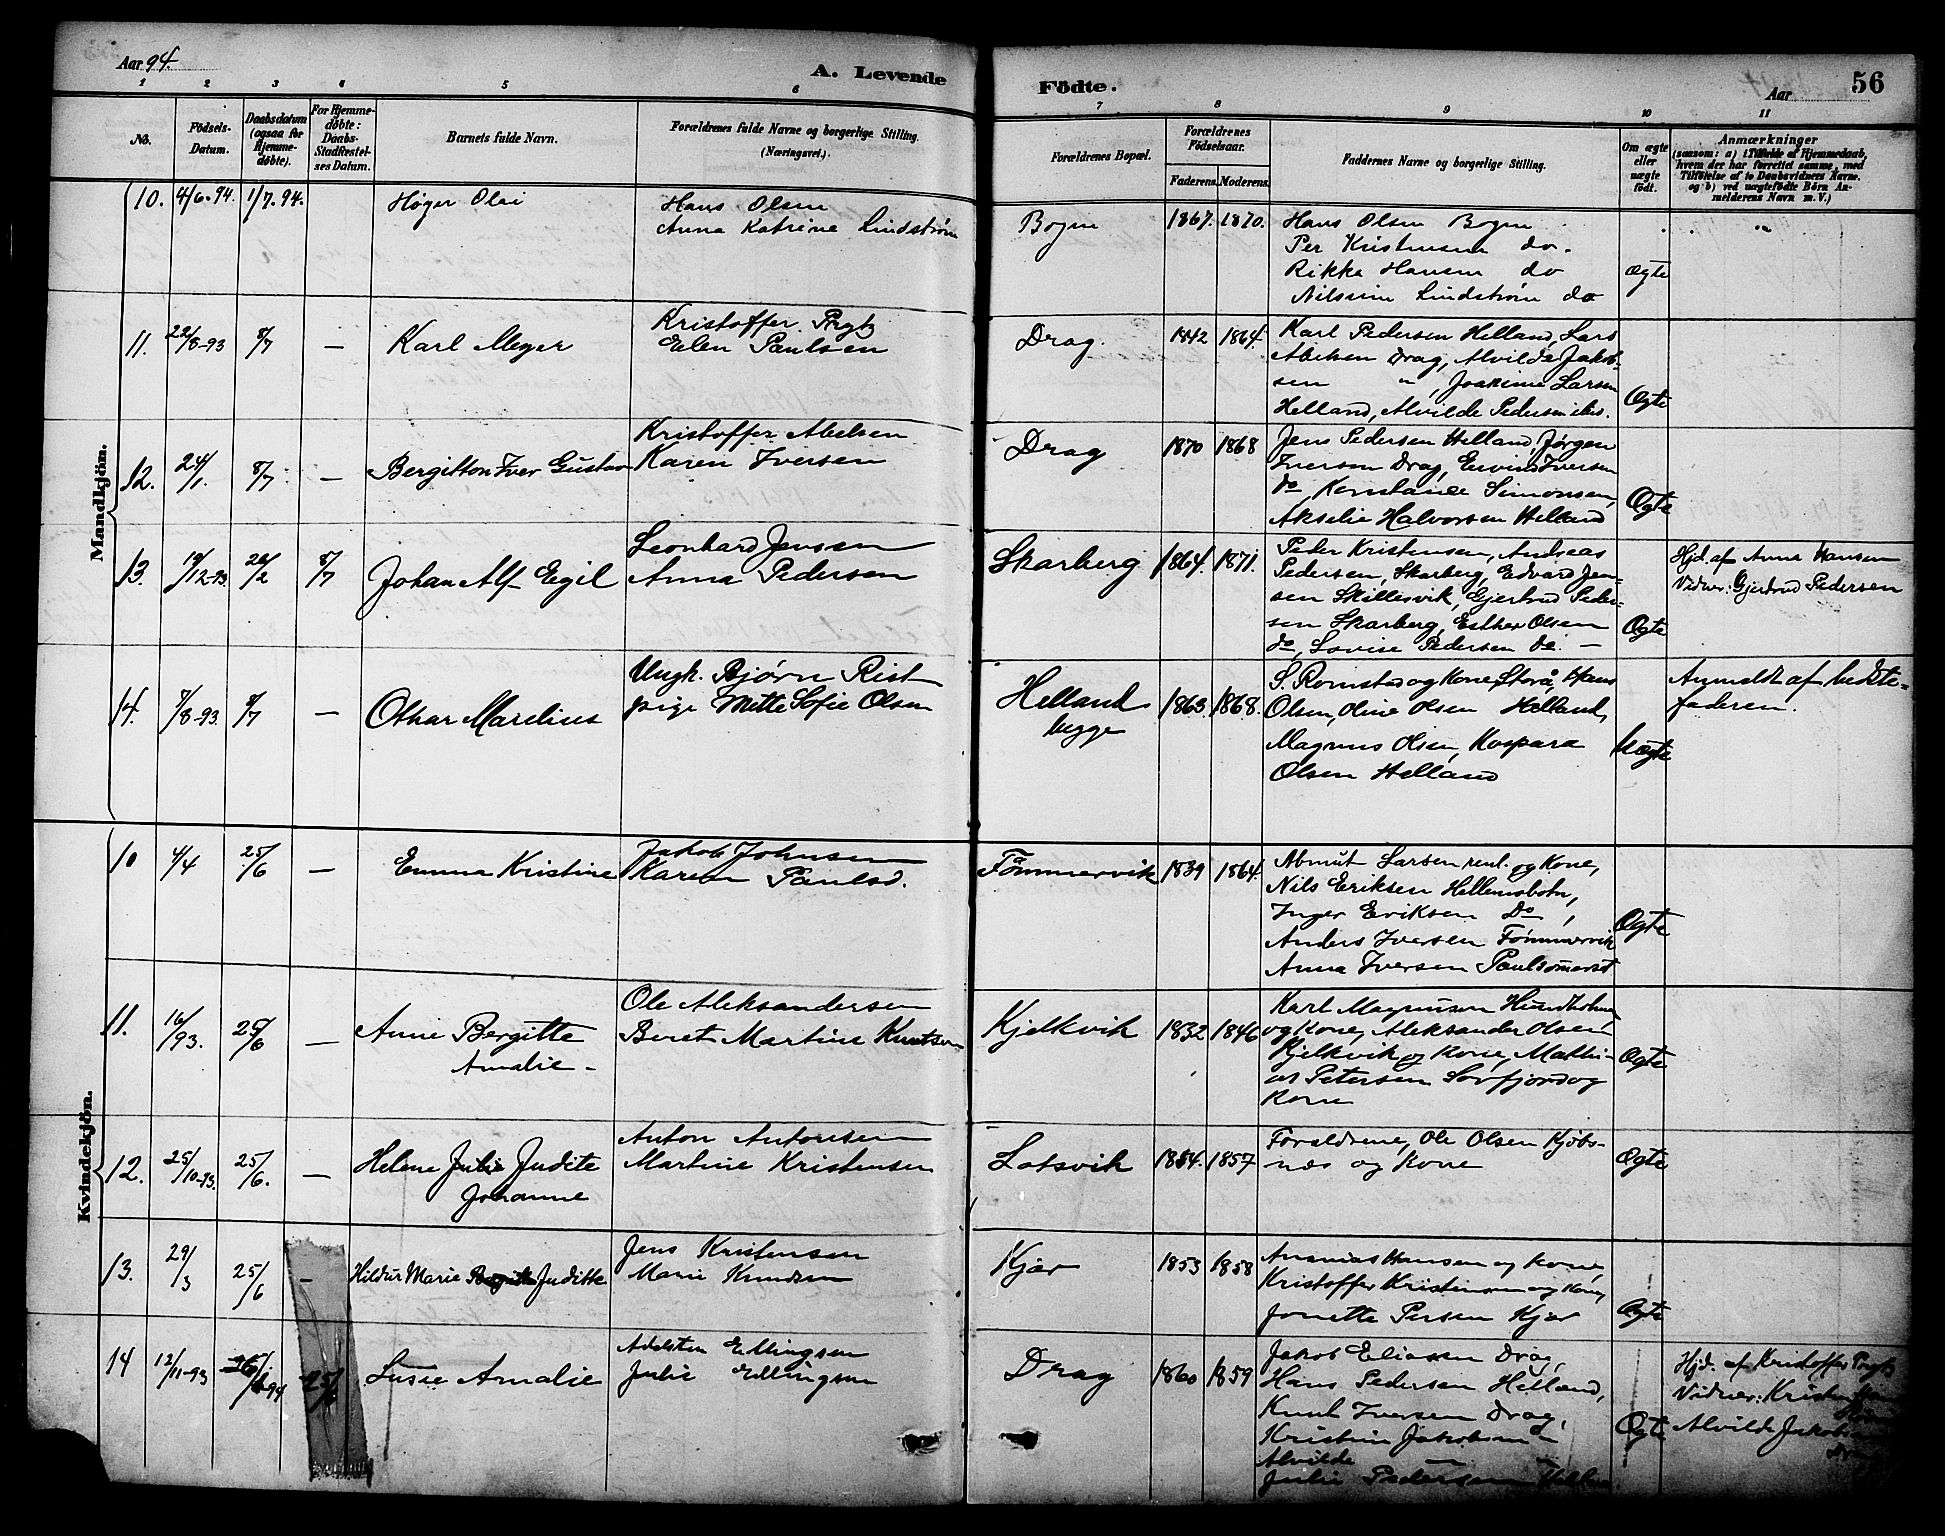 Aar 94.
A. Levende
Födte.
Aar
56
1 2 3 4 5 6 7 8 9 10 11
No.
Födsels-Datum.
Daabsdatum (ogsaa for Hjemme-döbte).
For Hjemme-döbte: Daabs-Stadfæstel-ses Datum.
Barnets fulde Navn.
Forældrenes fulde Navne og borgerlige Stilling. (Næringsvei.)
Forældrenes Bopæl.
Forældrenes Födselsaar.
Faderens. Moderens.
Faddernes Navne og borgerlige Stilling.
Om ægte eller uægte födt.
Anmærkninger
(saasom: a) i Tilfælde af Hjemmedaab, hvem der har forrettet samme, med Tilföielse af to Daabsvidners Navne. og b) ved uægtefödte Börn Anmelderens Navn m.V.)
Mandkjön.
10. 4/6.94. 1/7.94. Høger Olai
Hans Olsen
Anna Katrine Lindstrøm
Bogne 1867. 1870.
Hans Olsen Bogne
Per Kristensen do.
Rikke Hansen do
Nilsine Lindstrøm do
ægte
11. 22/8-93 8/7 — Karl Meyer
Kristoffer Prytz
Elen Paulsen
Drag. 1842 1864.
Karl Pedersen Helland, Lars
Abelsen Drag, Alvilde Jakob-
sen " , Joakime Larsen
Helland, Alvilde Pedersen ibis.
Ægte
12. 24/1. 8/7 — Bergitton Iver Gustav
Kristoffer Abelsen
Karen Iversen
Drag 1870 1868
Jens Pedersen Helland, Jørgen
Iversen Drag, Iversen
do, Konstanse Simonsen,
Akselie Halvorsen Helland
Ægte
13. 19/12-93. 26/2 8/7 Johan Alf Egil
Leonhard Jensen
Anna Pedersen
Skarberg 1864. 1871.
Peder Kristensen, Andreas
Pedersen, Skarberg, Edvard Jen-
sen Skillesvik, Gjertrud Peder-
sen Skarberg, Esther Olsen
do, Lovise Pedersen do. —
Ægte
Hjd. af Anna Hansen
Vidner: Gjertrud Pedersen
14. 7/8-93. 8/7 — Othar Marelius
Ungk. Bjørn Rist
pige Mette Sofie Olsen
Helland
begge
1863. 1868.
S. Romstad og Kone, Storå, Hans
Olsen, Oline Olsen Helland,
Magnus Olsen, Kaspara
Olsen Helland
Uægte
Anmeldt af bedste-
faderen.
Kvindekjön.
10 4/4 25/6 — Emma Kristine
Jakob Johnsen
Karen Paulsd.
Tømmervik 1839 1864.
Abmut Larsen rent. og Kone,
Nils Eriksen Hellemsbotn,
Inger Eriksen Do,
Anders Iversen Tømmervik
Anna Iversen
Ægte
11. 16/ 93. 25/6 — Anne Bergitte
Amalie -
Ole Aleksandersen
Beret Martine Knutsen
Kjelkvik 1832 1846
Karl Magnusen Hundholmen
og Kone, Aleksander Olsen
Kjelkvik og Kone, Mathi-
as Petersen Sørfjord og
Kone
Ægte
12. 25/10-93. 25/6. — Helene Julie Judite
Johanne
Anton Antonsen
Martine Kristensen
Lotsvik 1854. 1857
Forældrene, Ole Olsen Kjøbs-
næs og Kone
Ægte
13. 29/3 25/6 — Hildur Marie Juditte
Jens Kristensen
Marie Knudsen
Kjær 1853 1858
Ananias Hansen og Kone,
Kristoffer Kristensen og Kone,
Jonette Persen Kjær
Ægte
14 12/11-93 25/6 Susie Amalie
Adelsten Ellingsen
Julie Ellingsen
Drag 1860 1859
Jakob Eliassen Drag,
Hans Pedersen Helland,
Knut Iversen Drag,
Kristine Jakobsen "
Alvilde — "
Julie Pedersen Helland
Ægte
Hjd. af Kristoffer Prytz
Vidner: Kristen
Alvilde Jakobsen
Drag